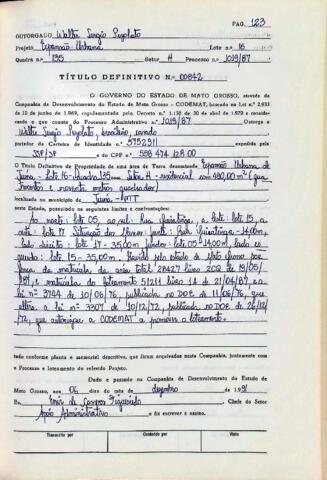 PAG. 123
OUTORGADO Walter Sergio Pizolato
Projeto Expansão Urbana Lote n.º 16
Quadra n.º 135 Setor H Processo n.º 1019/87
TÍTULO DEFINITIVO N.º 00842
O GOVERNO DO ESTADO DE MATO GROSSO, através da
Companhia de Desenvolvimento do Estado de Mato Grosso - CODEMAT, baseado na Lei n.º 2.933
de 10 de junho de 1969, regulamentada pelo Decreto n.º 1.138 de 30 de abril de 1970 e considerando
o que consta do Processo Administrativo n.º 1019/87 Outorga a
Walter Sergio Pizolato, brasileiro, casado
portador da Carteira de Identidade n.º 5752911 expedida pela
SSP/SP e do CPF n.º 598 474 128 00
O Título Definitivo de Propriedade de uma área de Terra denominada Expansão Urbana de
Juina - Lote 16 - Quadra 135 Setor H - residencial com 490,00 m² (quatrocentos
e noventa metros quadrados)
localizado no município de Juina - MT
neste Estado, possuindo os seguintes limites e confrontações:
Ao norte: lote 05, ao sul: Rua, a leste: lote 15, a
oeste: lote 17 Situação dos: frente: Rua - 14,00m,
lado direito: lote 17 - 35,00m fundos: lote 05 - 14,00m, lado esquerdo:
lote 15 - 35,00m. Havido pelo estado de Mato Grosso por
força da matrícula da área total 28427 livro 2CQ de 19/05/
87, e matrícula do loteamento 51211 livro de 21/04/87 e a
lei nº 3744 de 10/06/76, publicada no DOE de 11/06/76, que
altera a lei nº 3307 de 10/12/72, publicada no DOE de 26/12/
72, que autorizou a CODEMAT a promover o loteamento.
tudo conforme planta e memorial descritivo, que ficam arquivados nesta Companhia, juntamente com
o Processo e loteamento do referido Projeto.
Dado e passado na Companhia de Desenvolvimento do Estado de
Mato Grosso, aos 06 dias do mês de dezembro de 1991
Eu Enir de Campos Figueiredo Chefe do Setor
Apoio Administrativo o fiz escrever e assino.
Transcrito por Conferido por Visto